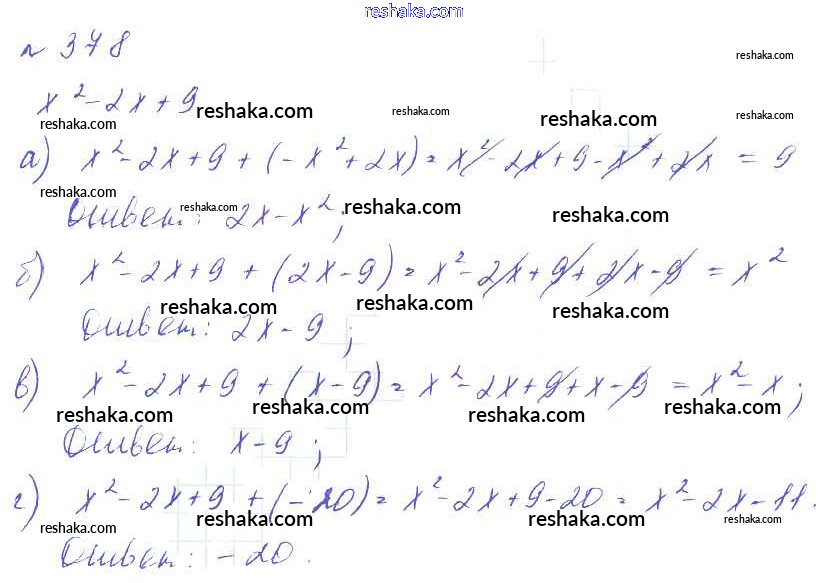 reshaka.com
№ 378
reshaka.com
x² - 2x + 9
reshaka.com reshaka.com reshaka.com reshaka.com reshaka.com
а) x² - 2x + 9 + (- x² + 2x) = x² - 2x + 9 - x² + 2x = 9
reshaka.com reshaka.com reshaka.com reshaka.com
Ответ: 2x - x²;
б) x² - 2x + 9 + (2x - 9) = x² - 2x + 9 + 2x - 9 = x²
reshaka.com reshaka.com reshaka.com
Ответ: 2x - 9;
в) x² - 2x + 9 + (x - 9) = x² - 2x + 9 + x - 9 = x² - x;
reshaka.com reshaka.com reshaka.com reshaka.com
Ответ: x - 9;
г) x² - 2x + 9 + (- 20) = x² - 2x + 9 - 20 = x² - 2x - 11.
reshaka.com reshaka.com reshaka.com reshaka.com reshaka.com
Ответ: - 20.